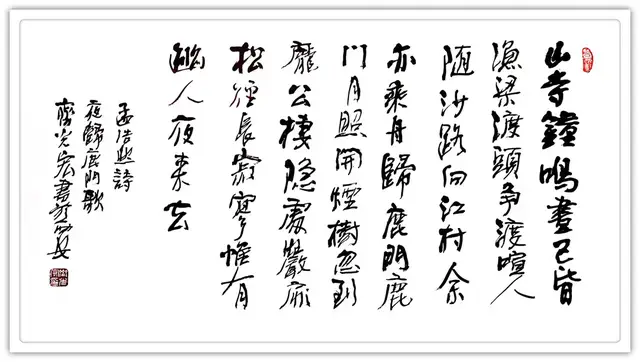 山寺鐘鳴晝已昏
漁梁渡頭爭渡喧人
随沙路向江村余
亦乘舟歸鹿門鹿
門月照開煙樹忽到
龐公棲隱處巖扉
松徑長寂寥惟有
幽人夜来去
孟浩然詩
夜歸鹿門歌
齊光宏書